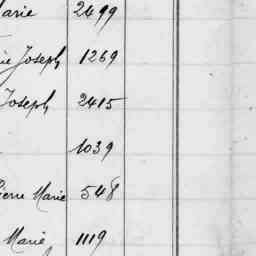 Marie 2499
ie Joseph 1269
Joseph 2415
1039
Pierre Marie 548
Marie 1119